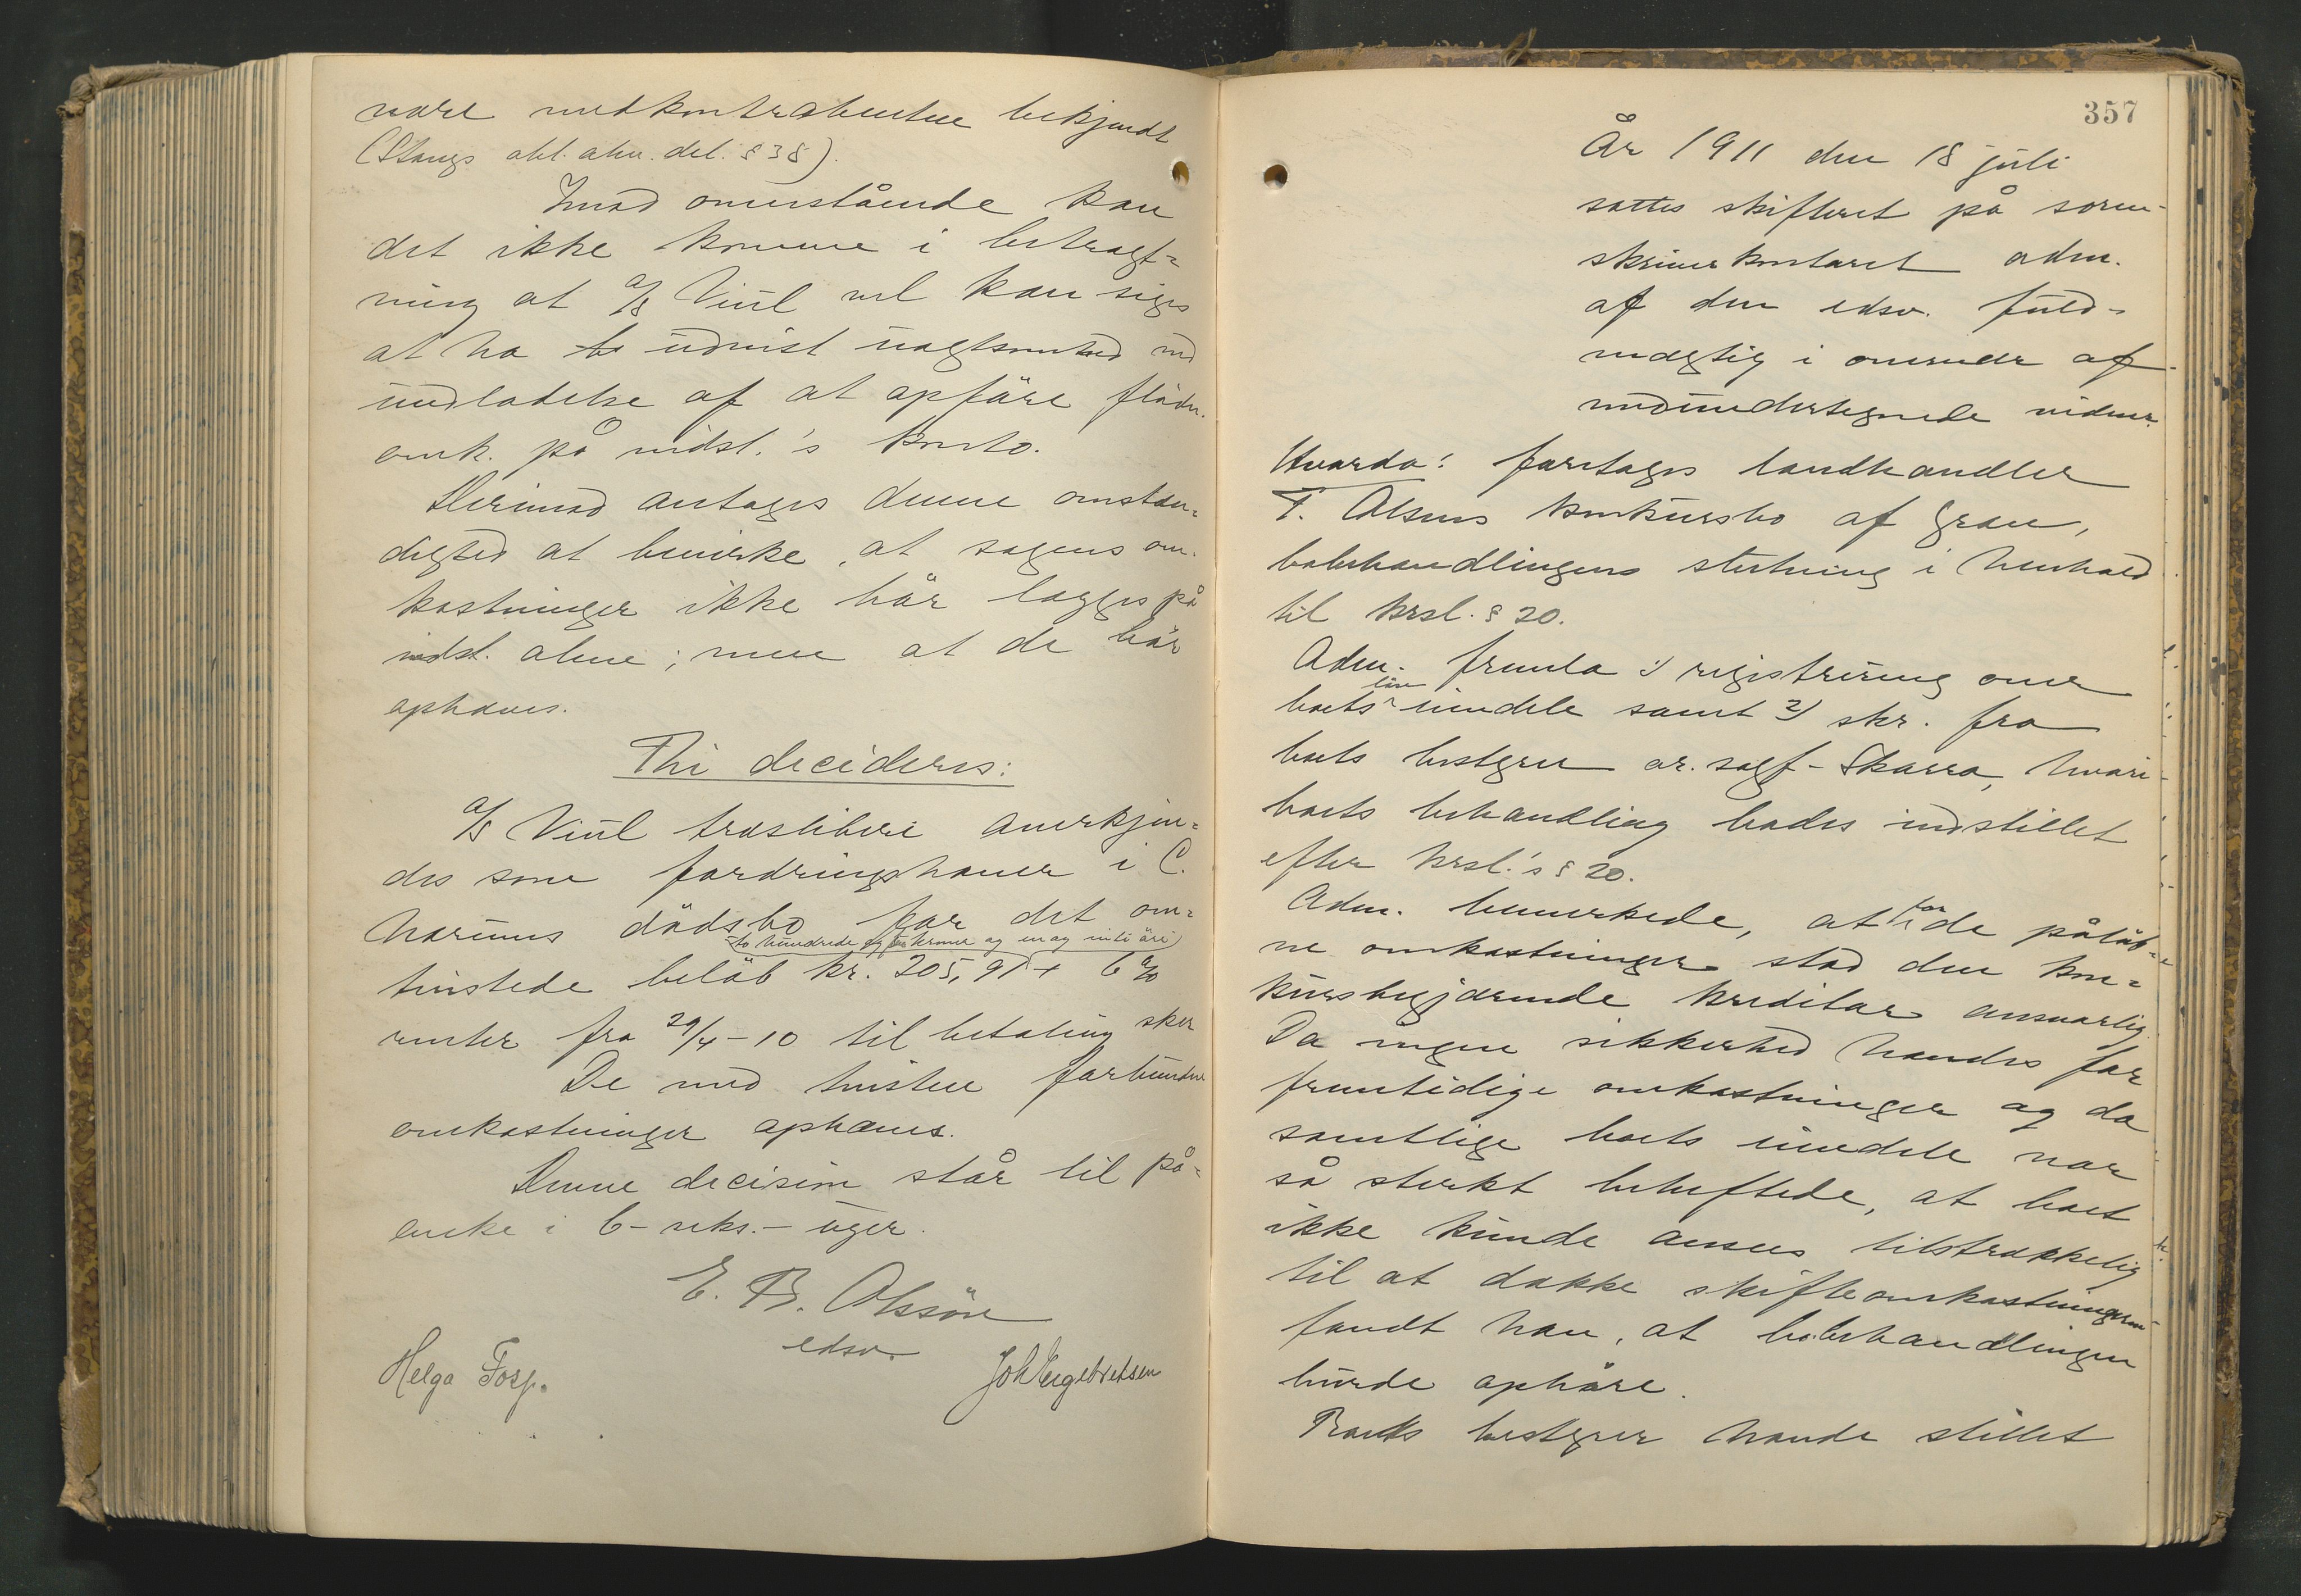 være medkontrahenten bekjendt
(Stangs obl. alm. del. § 38).
Imod ovenstående kan
det ikke komme i betragt-
ning at a/s Viul vel kan siges
at ha udvist uagtsomhed ved
undladelse af at opføre flødn.
omk. på vedst.'s konto.
Derimod antages denne omstæn-
dighed at bevirke, at sagens om-
kostninger ikke bør lægges på
vedst. alene; men at de bør
ophæves.
Thi decideres:
a/s Viul træsliberi anerkjen-
des som fordringshaver i C.
dødsbo for det om-
to hundrede og fem kroner og en og niti øre
tvistede beløb kr. 205,91 + 6 %
renter fra 29/4-10 til betaling sker
De med tvisten forbundne
omkostninger ophæves.
Denne decision står til på-
anke i 6-seks.- uger.
E. B. Olssøn
edsv.
Helga Fosp. Joh Engebretsen
357
År 1911 den 18 juli
sattes skifteret på soren-
skriverkontoret adm.
af den edsv. fuld-
mægtig i overvær af
medundertegnede vidner.
Hvorda: foretages landhandler
T. Olsens konkursbo af Gran,
bobehandlingens slutning i henhold
til krsl. § 20.
Adm. fremla 1) registrering over
løse
boets midele samt 2) skr. fra
boets bestyrer or. sagf. Skarra, hvori
boets behandling bedes indstillet
efter krsl.'s § 20.
Adm. bemerkede, at for de påløb-
ne omkostninger stod den kon-
kursbegjærende kreditor ansvarlig.
Da ingen sikkerhed havdes for
fremtidige omkostninger og da
samtlige boets eiendele var
så sterkt beheftede, at boet
ikke kunde ansees tilstrækkelig
til at dække skifteomkostningerne
fandt han, at bobehandlingen
burde ophøre.
Boets bestyrer havde stillet